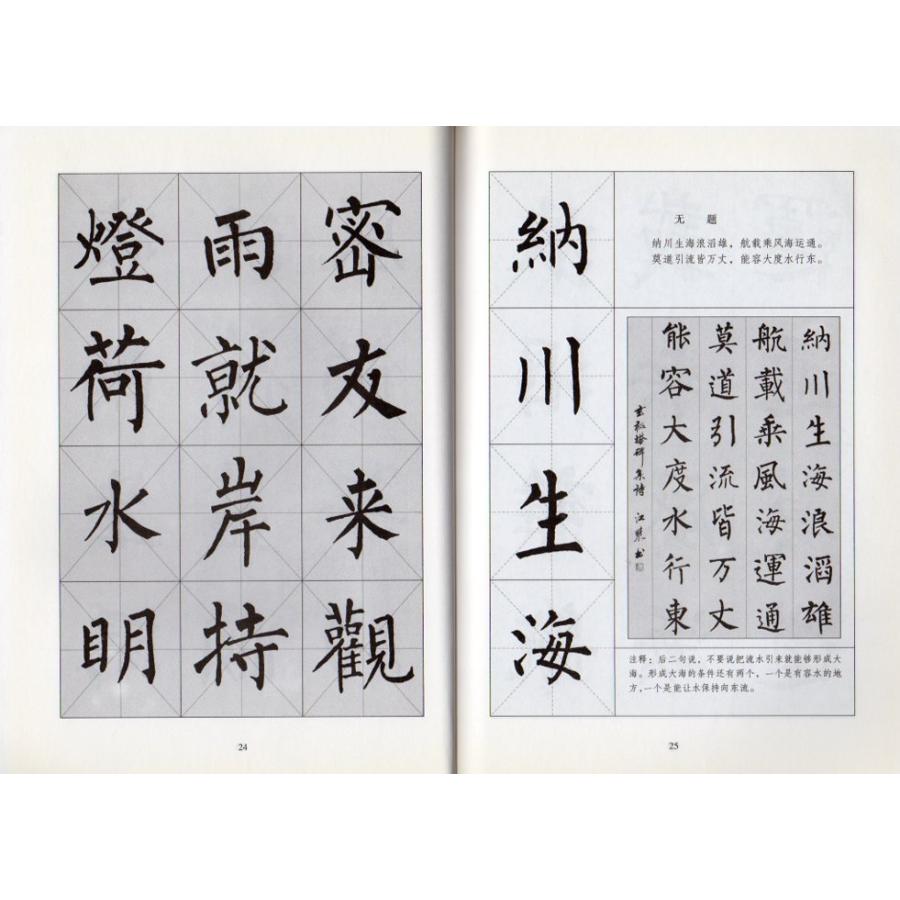 密友来觀
雨就岸持
燈荷水明
24
納川生海
无 题
纳川生海浪滔雄，航载乘风海运通。
莫道引流皆万丈，能容大度水行东。
納川生海浪滔雄
航載乘風海運通
莫道引流皆万丈
能容大度水行東
玄秘塔碑 集詩 江 书
注释：后二句说，不要说把流水引来就能够形成大
海。形成大海的条件还有两个，一个是有容水的地
方，一个是能让水保持向东流。
25